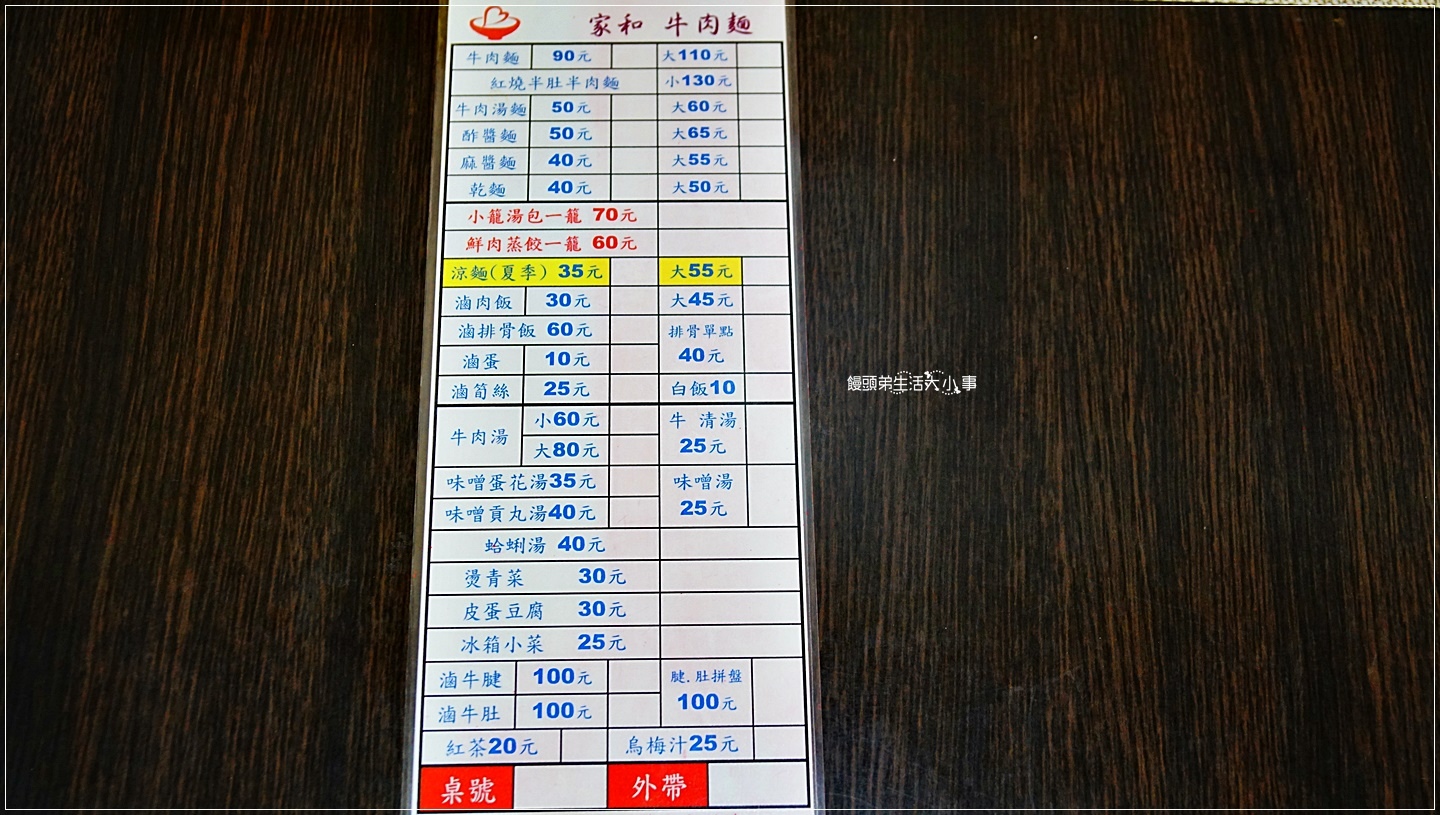 家和 牛肉麵
牛肉麵 90元 大110元
紅燒半肚半肉麵 小130元
牛肉湯麵 50元 大60元
酢醬麵 50元 大65元
麻醬麵 40元 大55元
乾麵 40元 大50元
小籠湯包一籠 70元
鮮肉蒸餃一籠 60元
涼麵(夏季) 35元 大55元
滷肉飯 30元 大45元
滷排骨飯 60元 排骨單點
40元
滷蛋 10元
滷筍絲 25元 白飯10
牛肉湯 小60元 牛 清湯
大80元 25元
味噌蛋花湯35元 味噌湯
味噌貢丸湯40元 25元
蛤蜊湯 40元
燙青菜 30元
皮蛋豆腐 30元
冰箱小菜 25元
滷牛腱 100元 腱.肚拼盤
滷牛肚 100元 100元
紅茶20元 烏梅汁25元
桌號 外帶
饅頭弟生活大小事